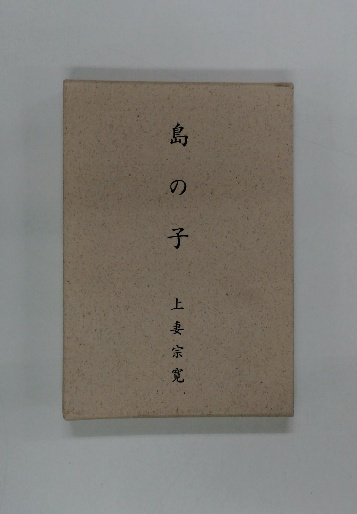 島の子
上妻宗寛